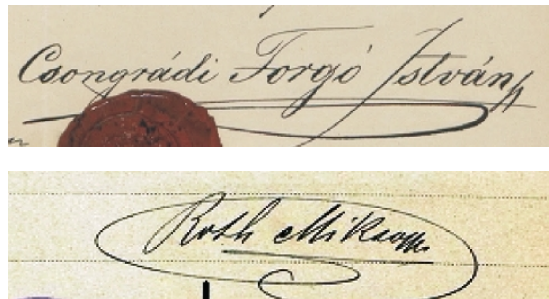 Csongrádi Forgó István
Roth Miksa